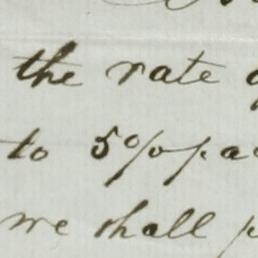 the rate
to 5%
we shall